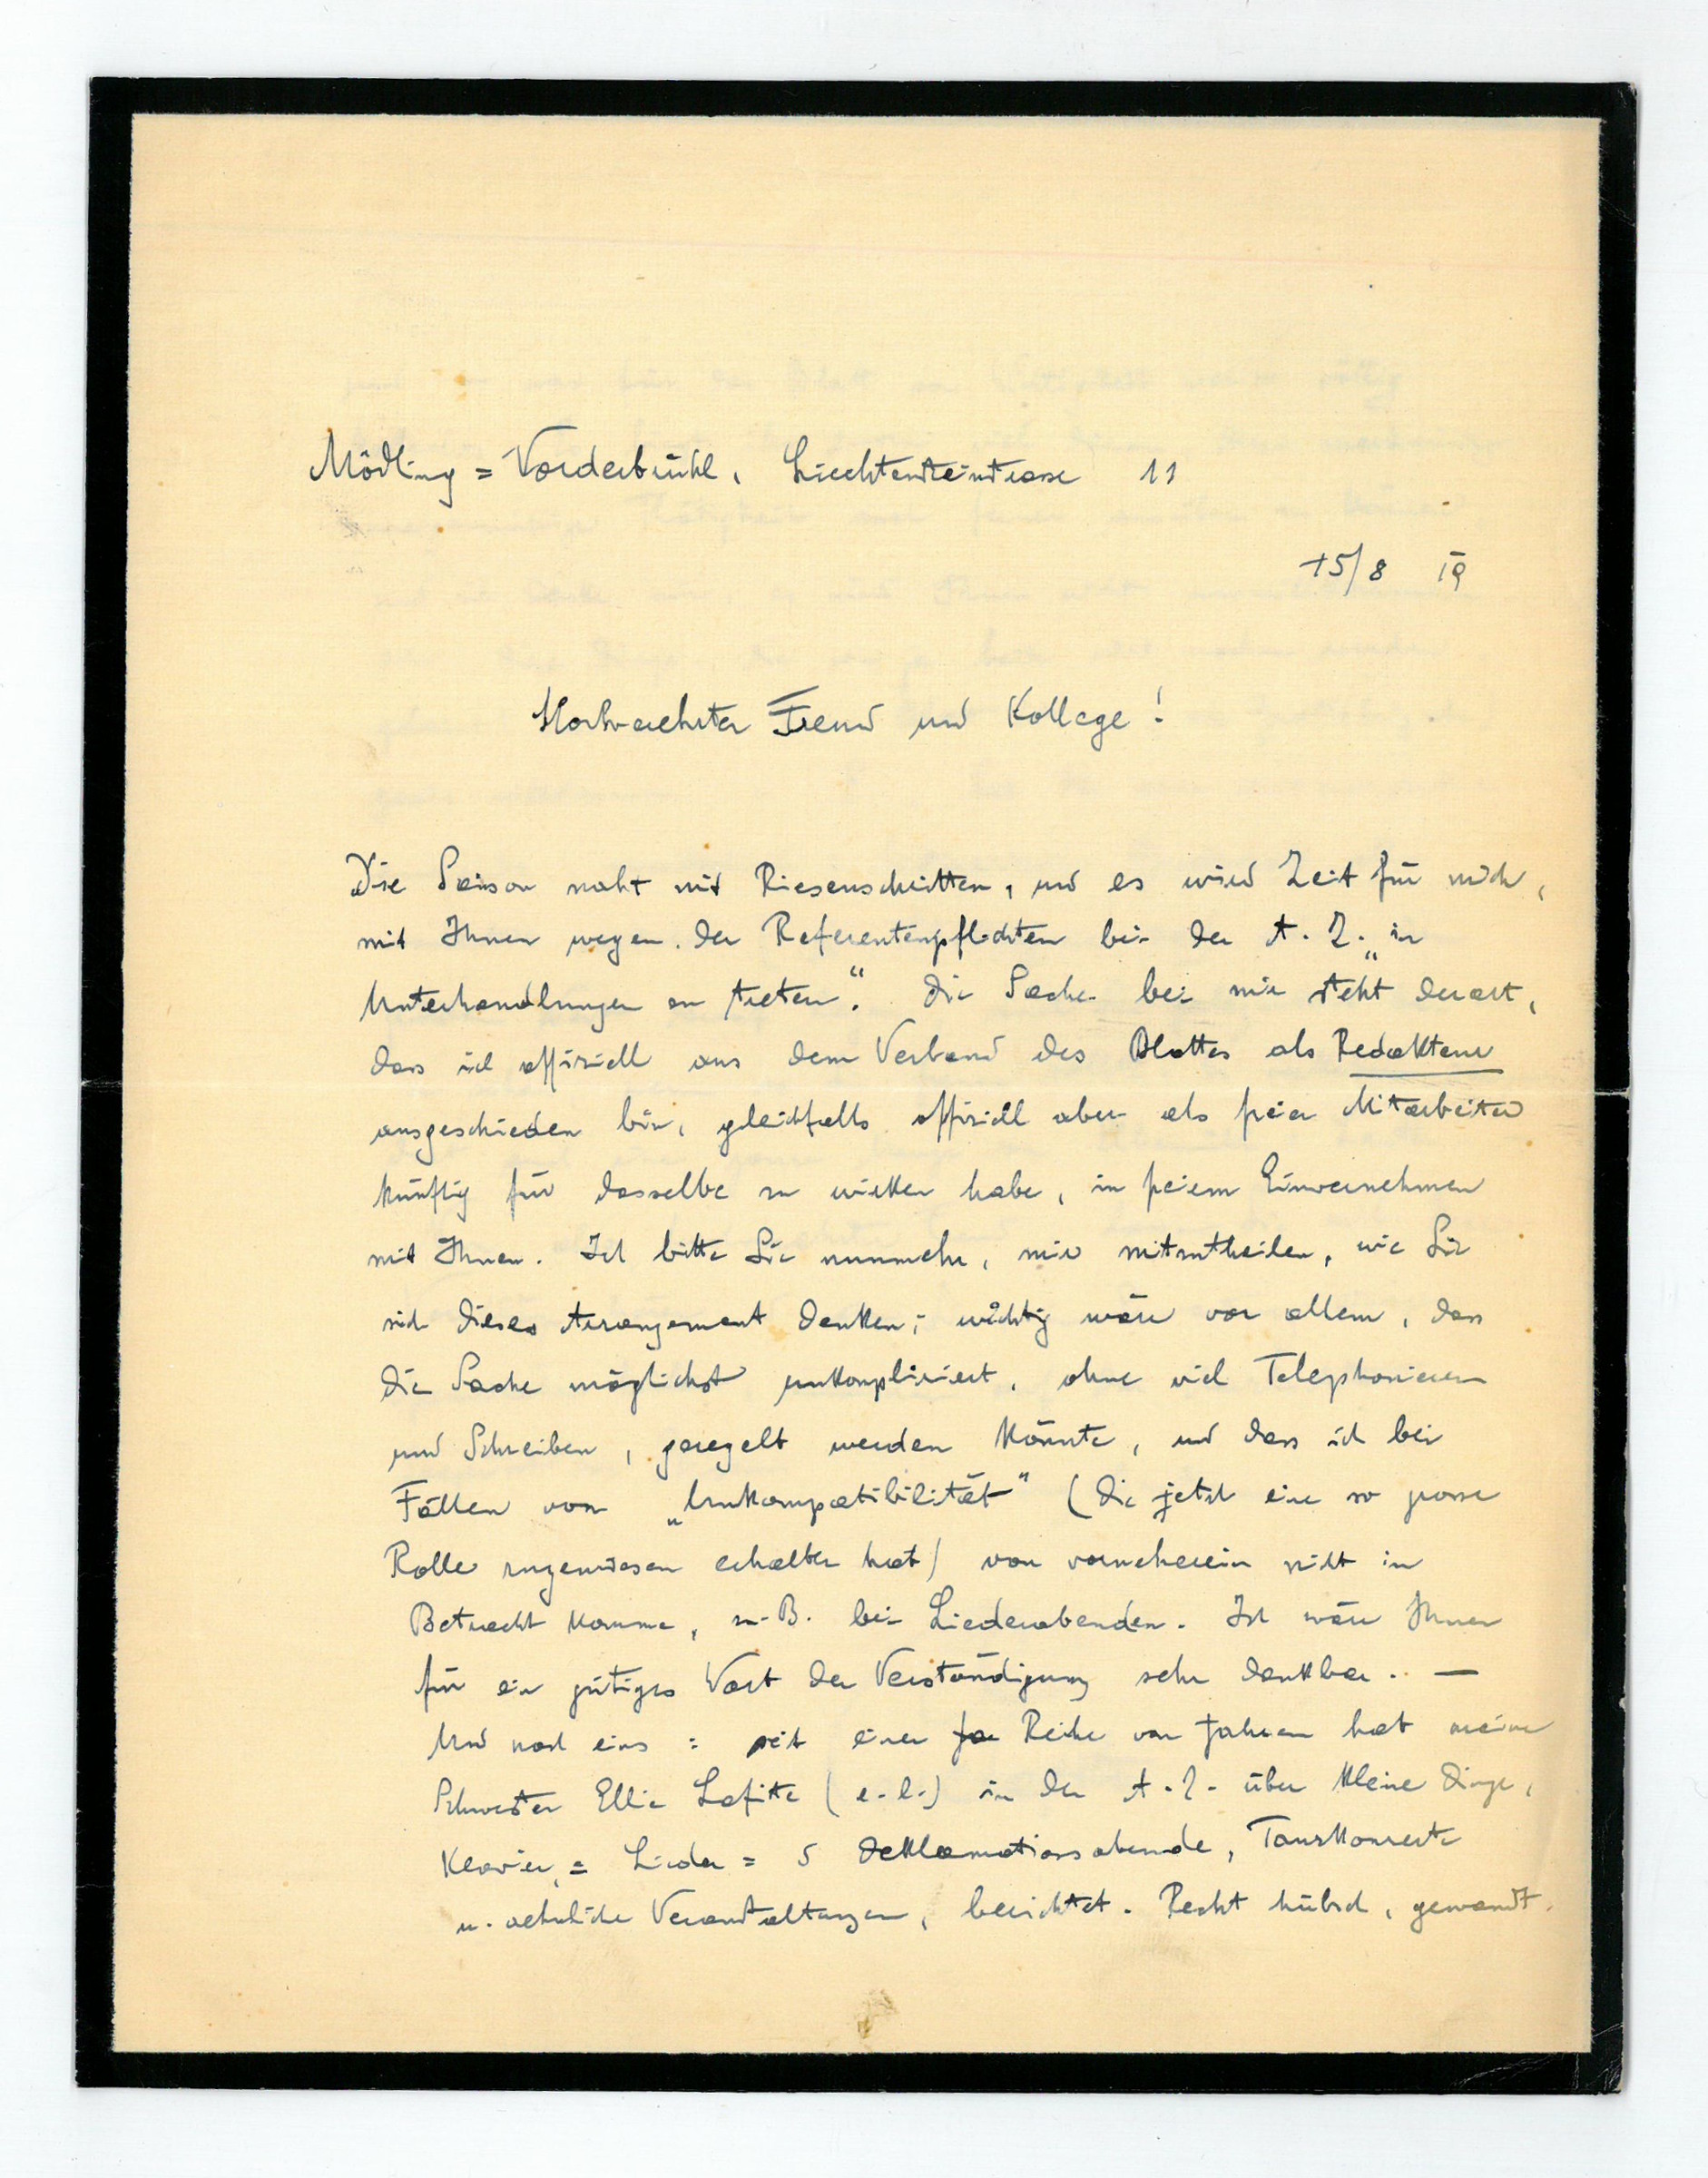 Mödling = Vorderbrühl, Liechtensteinstrasse 11
15/8 19
Hochverehrter Freund und Kollege!
Die Saison naht mit Riesenschritten, und es wird Zeit für mich,
mit Ihnen wegen der Referentenpflichten bei der A. Z. „in
Unterhandlungen zu treten“. Die Sache bei mir steht derart,
dass ich offiziell aus dem Verband des Blattes als Redakteur
ausgeschieden bin, gleichfalls offiziell aber als freier Mitarbeiter
künftig für dasselbe zu wirken habe, in freiem Einvernehmen
mit Ihnen. Ich bitte Sie nunmehr, mir mitzutheilen, wie Sie
sich dieses Arrangement denken; wichtig wäre vor allem, dass
die Sache möglichst unkompliziert, ohne viel Telephonieren
und Schreiben, geregelt werden könnte, und dass ich bei
Fällen von „Unkompatibilität“ (die jetzt eine so grosse
Rolle zugewiesen erhalten hat) von vorneherein nicht in
Betracht komme, z. B. bei Liederabenden. Ich wäre Ihnen
für ein gütiges Wort der Verständigung sehr dankbar. —
Und noch eins: seit einer Reihe von Jahren hat meine
Schwester Ellie Lafite (e. l.) in der A. Z. über kleine Dinge,
Klavier, = Lieder = Deklamationsabende, Tanzkonzerte
u. aehnliche Veranstaltungen, berichtet. Recht hübsch, gewandt.